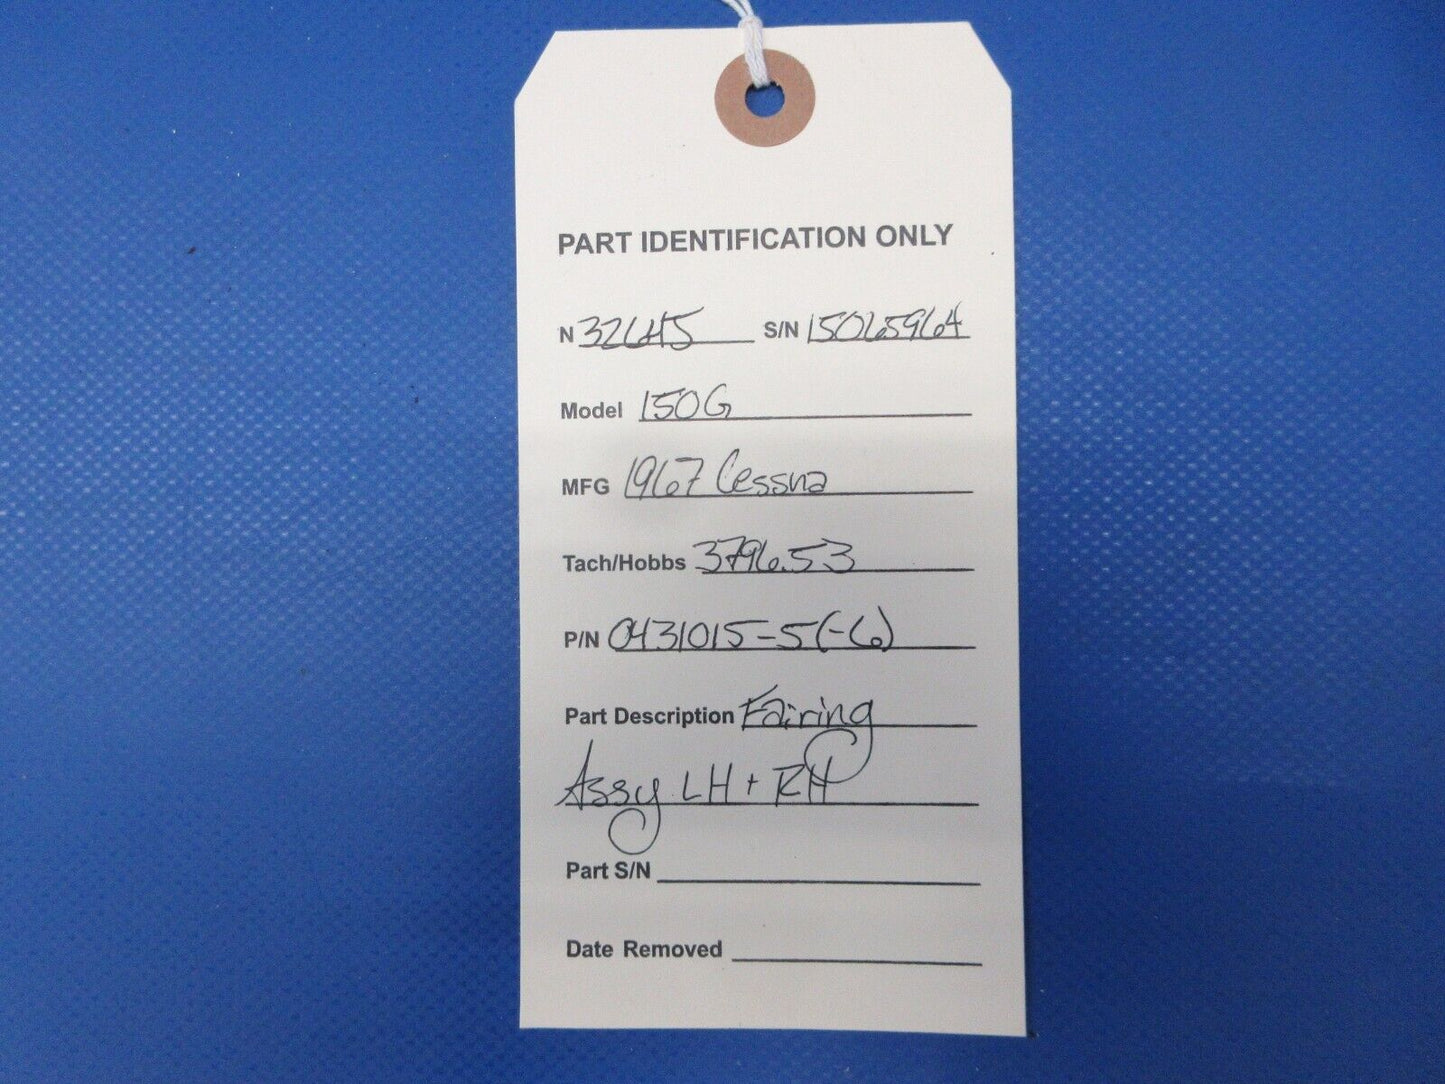 PART IDENTIFICATION ONLY
N 3264S S/N 15065964
Model 150G
MFG 1967 Cessna
Tach/Hobbs 3796.53
P/N 0431015-5(-6)
Part Description Fairing
Assy LH + RH
Part S/N
Date Removed